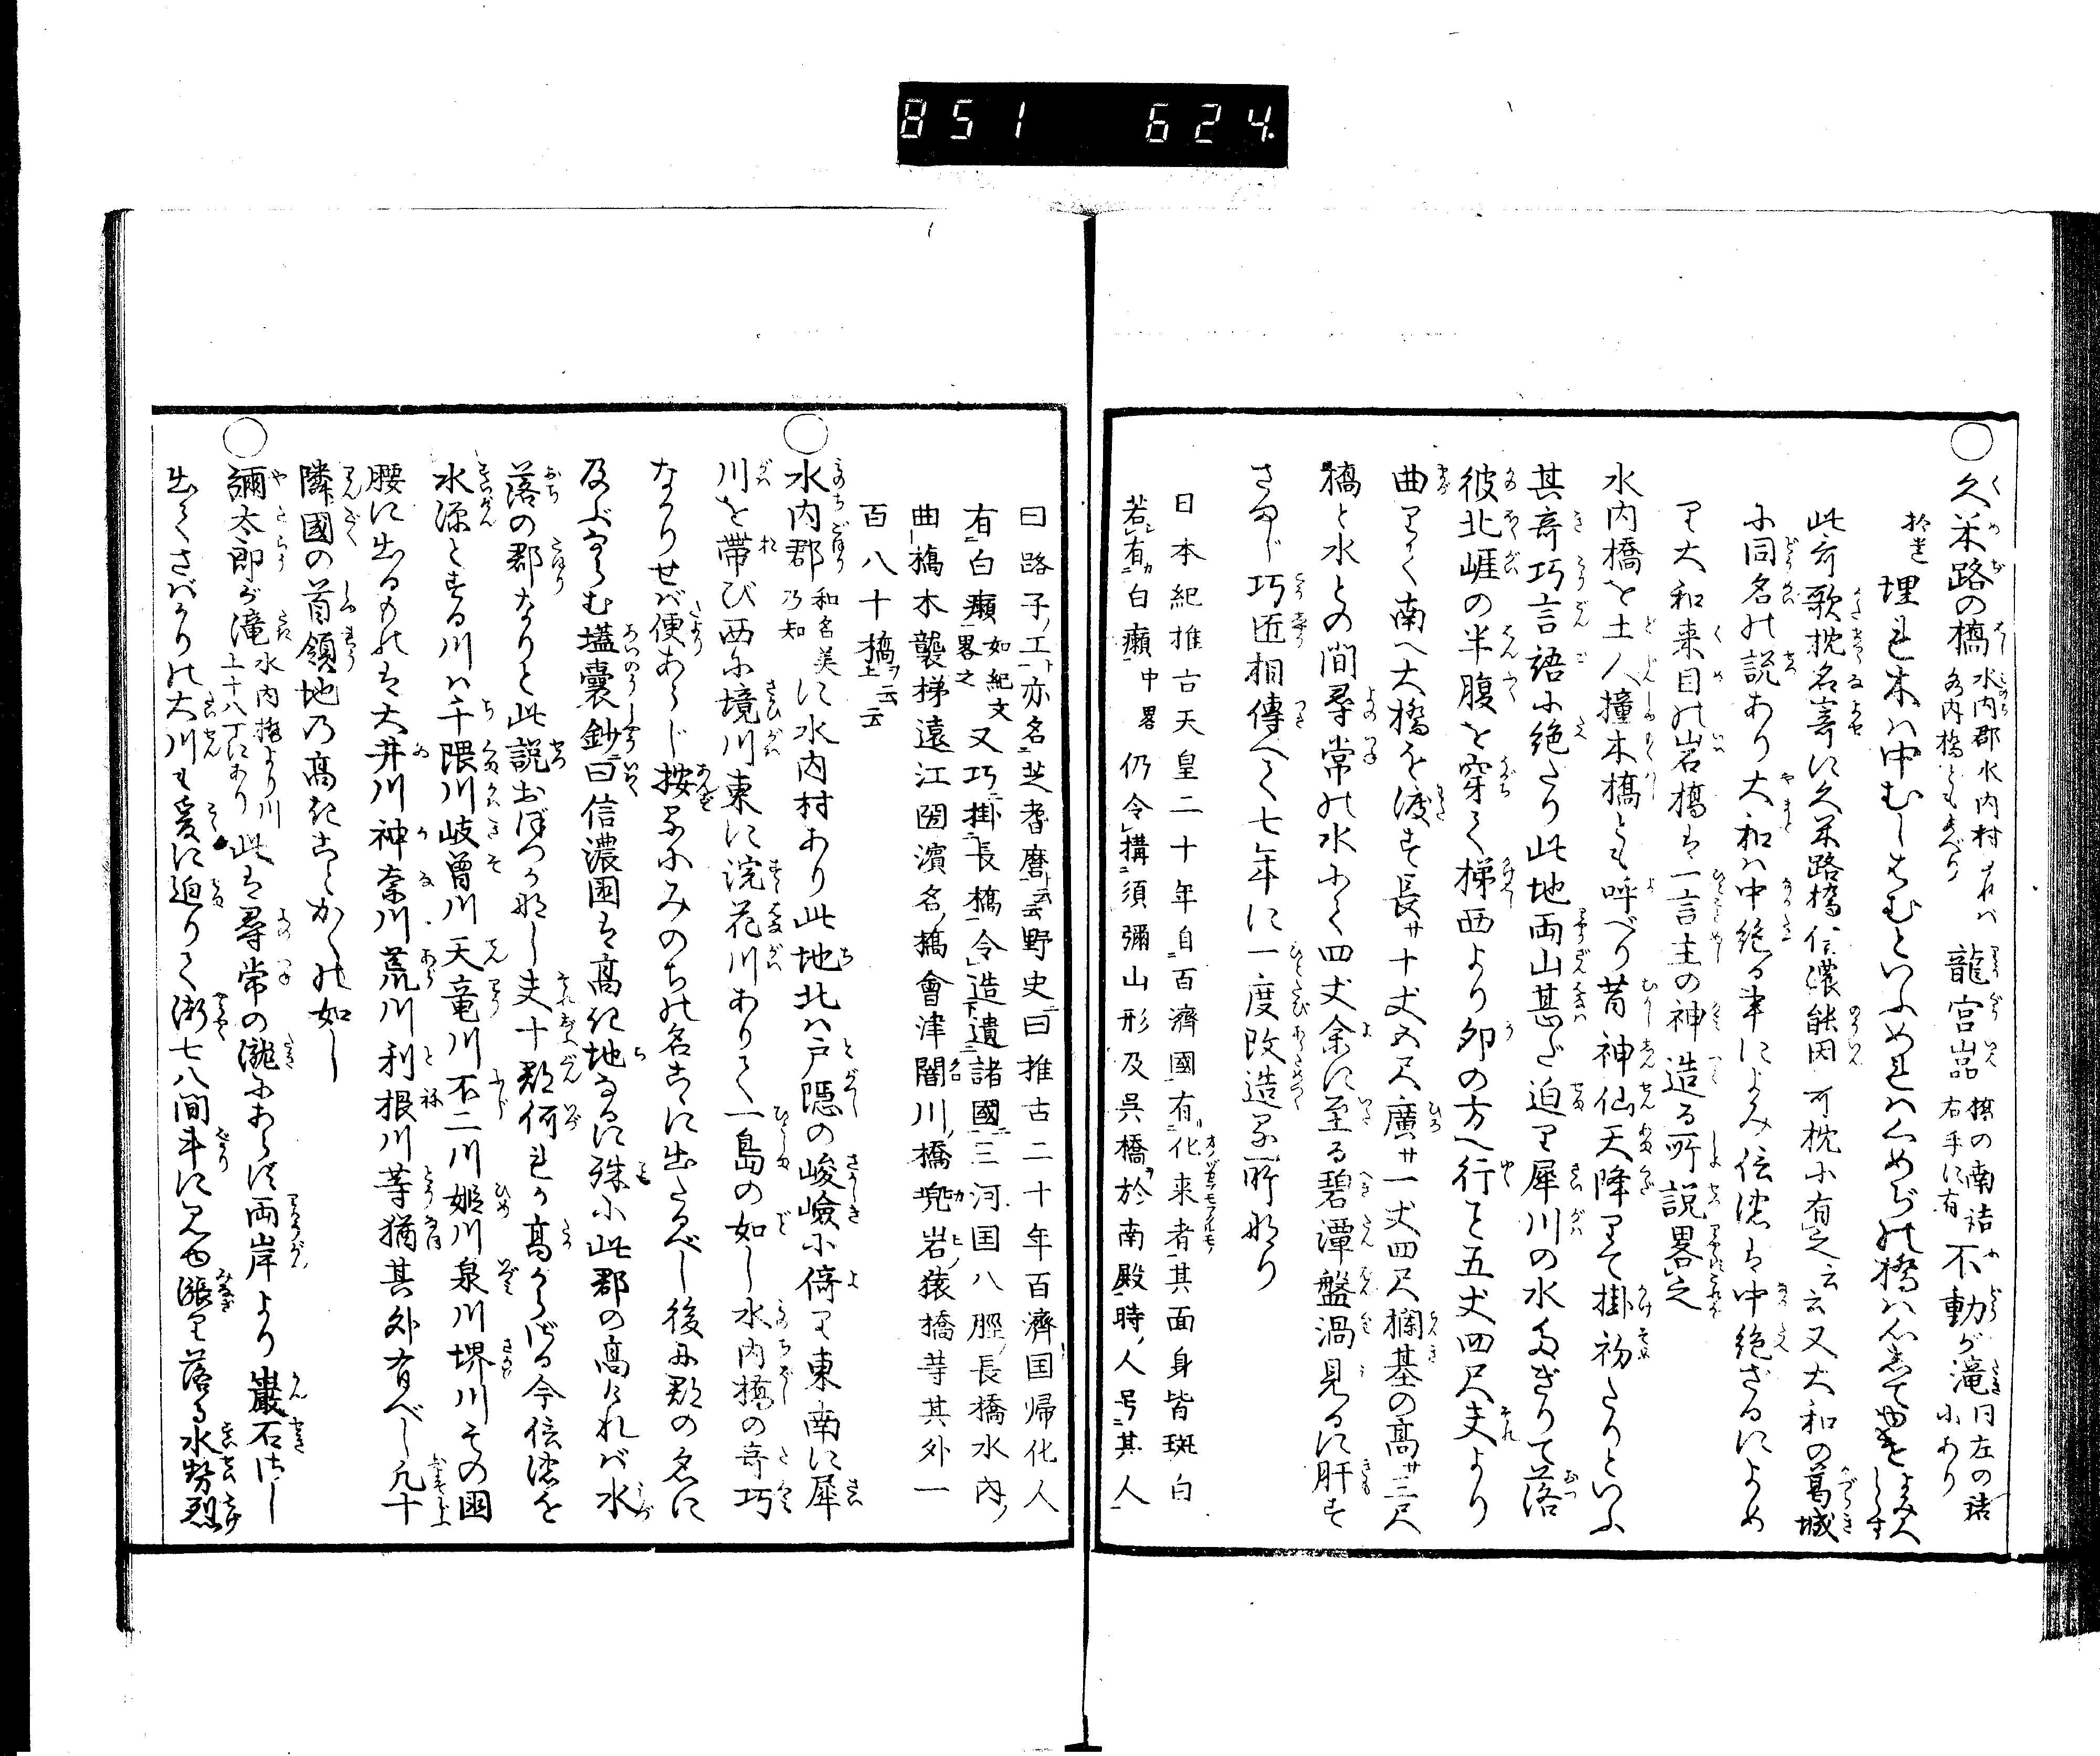 851 624.
○久米路の橋 水内郡水内村右ハ 水内橋ともいへり 龍宮嵓 橋の南詰右手に有 不動が滝 同左の詰にあり
拾遺 埋れ木ハ中むしはむといふめれハくめぢの橋ハ心してゆけ よみ人しらす
此哥歌枕名寄に久米路橋信濃能因哥枕小有之云云又大和の葛城
に同名の説あり大和ハ中絶る事によみ信濃ハ中絶ざるによめ
り大和来目の岩橋ハ一言主の神造る所説畧之
水内橋を土人撞木橋とも呼べり昔神仙天降りて掛初たりといふ
其奇巧言語に絶たり此地両山甚だ迫り犀川の水みなぎりて落
彼北崕の半腹を穿て梯西より卯の方へ行こと五丈四尺夫より
曲りて南へ大橋を渡す長サ十丈五尺廣サ一丈四尺欄基の高サ三尺
橋と水との間尋常の水にて四丈余に至る碧潭盤渦見るに肝す
さまじ巧匠相傳へて七年に一度改造る所なり
日本紀推古天皇二十年自百濟國有化来者其面身皆斑白
若有白癩中畧仍令構須彌山形及呉橋於南殿時人号其人
曰路子工亦名芝耆磨云云野史曰推古二十年百濟国帰化人
有白癩如紀文畧之又巧掛長橋令造遣諸國三河国八脛長橋水内
曲橋木襲梯遠江国濱名橋會津闇川橋兜岩猿橋等其外一
百八十橋云云
○水内郡 和名美乃知 に水内村あり此地北ハ戸隠の峻嶮に倚り東南に犀
川を帯び西に境川東に浣花川ありて一島の如し水内橋の奇巧
なかりせば便あらじ按るにみのちの名こゝに出たるべし後に郡の名に
及ぶならむ壒囊鈔曰信濃国は高き地なるに殊に此郡の高けれバ水
落の郡なりと此説おぼつかなし夫十郡何れか高からざる今信濃を
水源とする川ハ千隈川岐曽川天竜川不二川姫川泉川堺川その国
腰に出るものハ大井川神奈川荒川利根川等猶其外有べし凡十
隣國の首領地の高きことかくの如し
○彌太郎が滝 水内橋より川上十八丁にあり 此は尋常の瀧にあらず両岸より巌石さし
出てさばかりの大川も爰に迫りて漸七八間斗に見ゆ漲り落る水勢烈